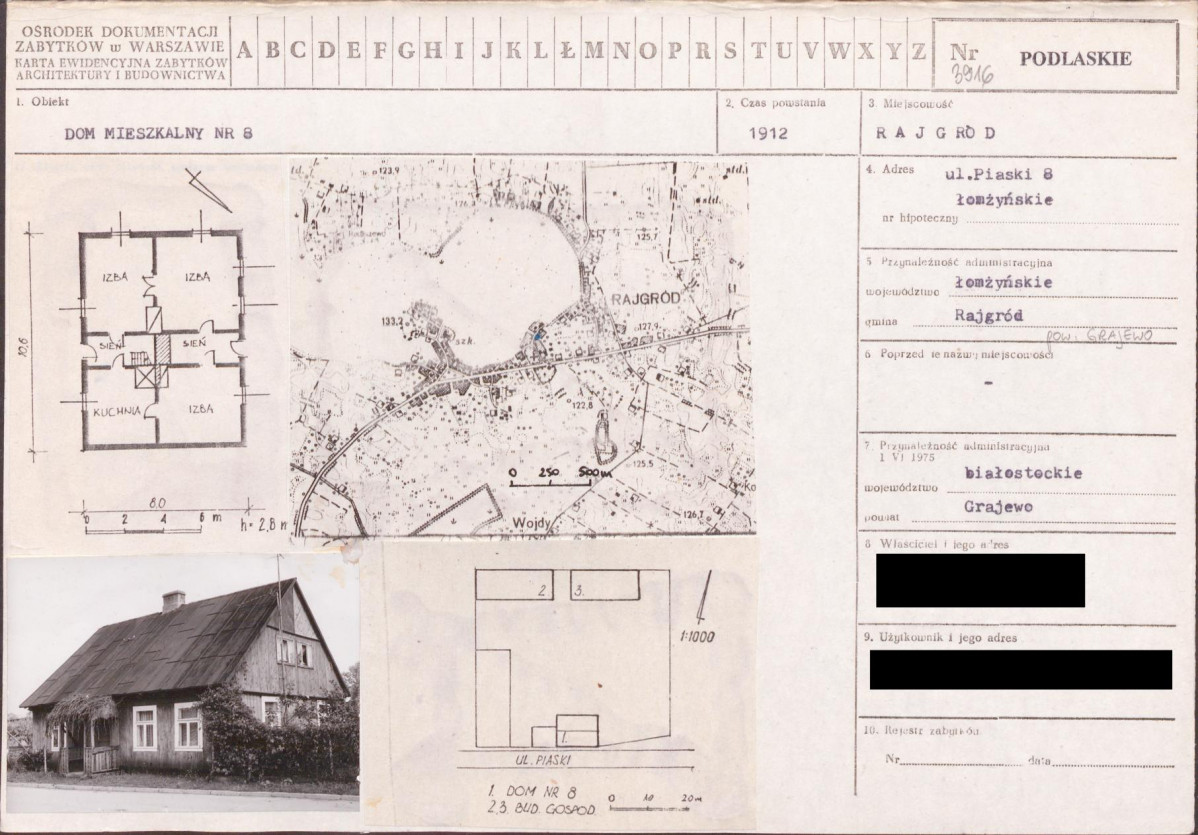 OŚRODEK DOKUMENTACJI
ZABYTKÓW w WARSZAWIE
KARTA EWIDENCYJNA ZABYTKÓW
ARCHITEKTURY I BUDOWNICTWA
A B C D E F G H I J K L Ł M N O P R S T U V W X Y Z
Nr 3916
PODLASKIE
1. Obiekt
DOM MIESZKALNY NR 8
2. Czas powstania
1912
3. Miejscowość
RAJGRÓD
4. Adres
ul.Piaski 8
łomżyńskie
nr hipoteczny
5 Przynależność administracyjna
województwo łomżyńskie
gmina Rajgród
pow. GRAJEWO
6 Poprzednie nazwy miejscowości
-
7. Przynależność administracyjna
1 VI 1975
województwo białostockie
powiat Grajewo
8 Właściciel i jego adres
9. Użytkownik i jego adres
10. Rejestr zabytków
Nr data
IZBA IZBA
SIEŃ SIEŃ
KUCHNIA IZBA
10,6
8,0
0 2 4 6 m
h= 2,8 m
123,9
std.
125,7
RAJGRÓD
133,2
szk.
127,9
122,8
0 250 500m
125,5
126,7
Ko
Wojdy
2. 3.
1:1000
1.
UL. PIASKI
1. DOM NR 8
2,3. BUD. GOSPOD.
0 10 20m